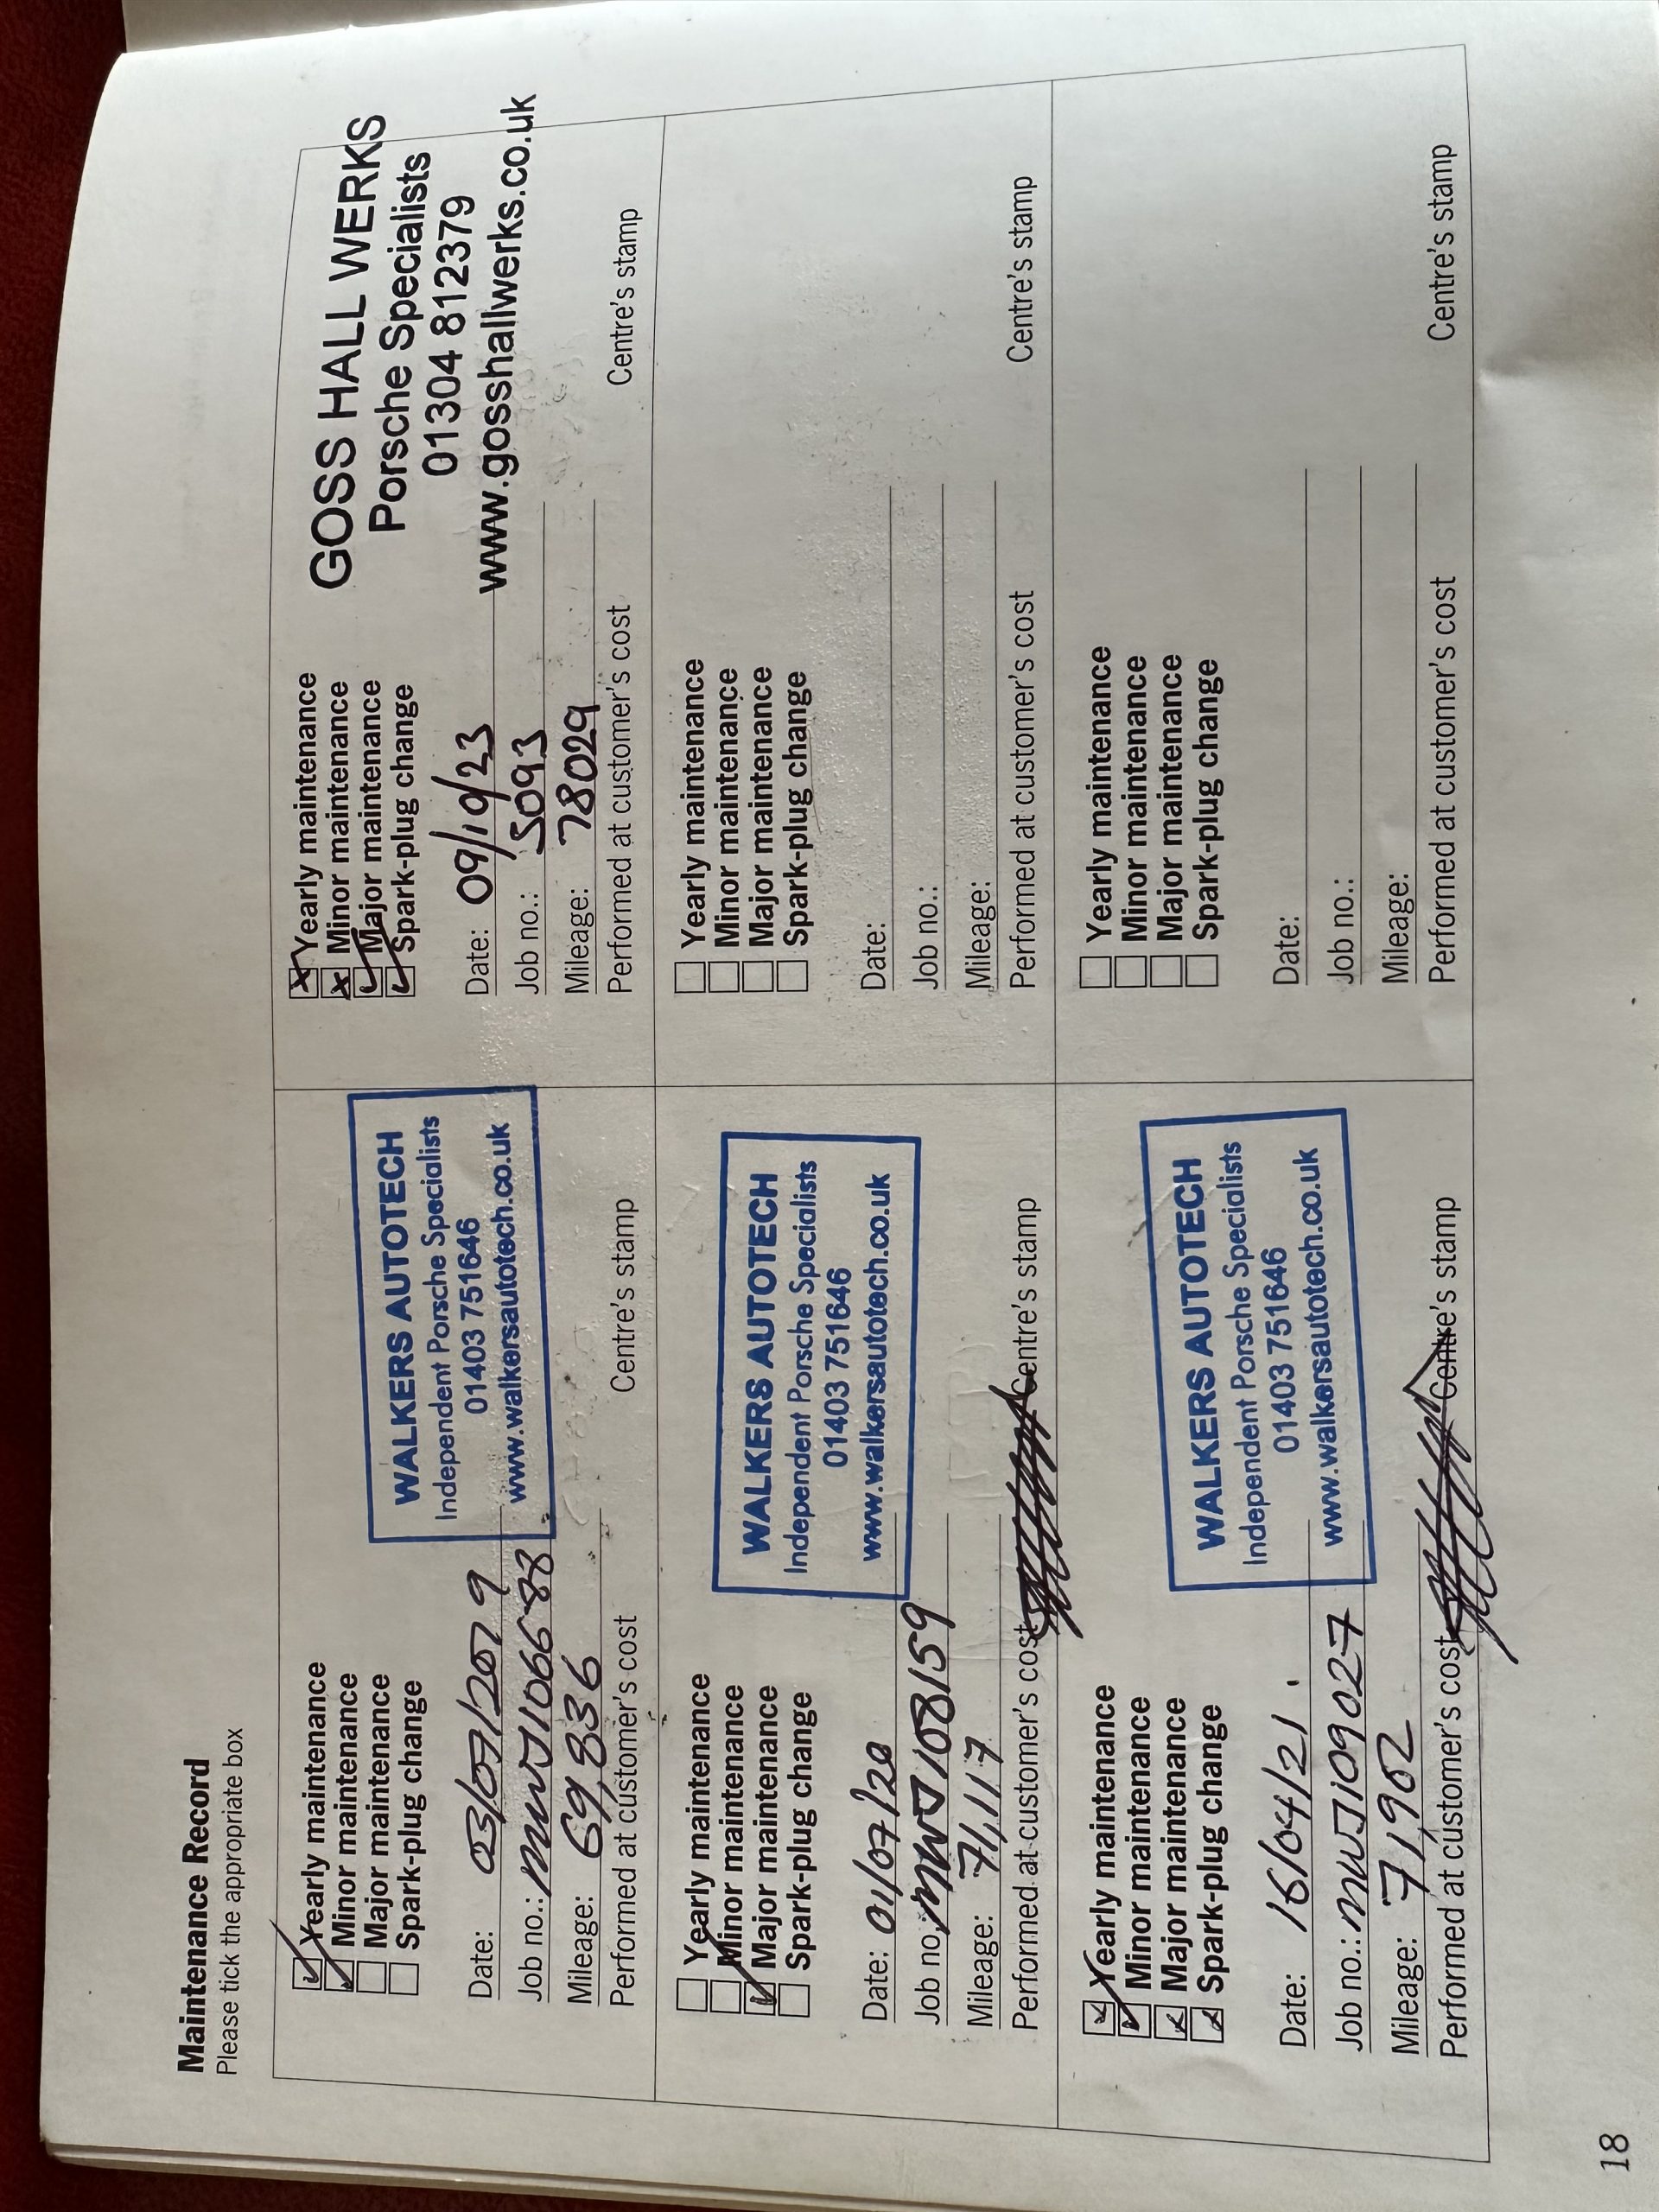 Maintenance Record
Please tick the appropriate box
Yearly maintenance
Minor maintenance
Major maintenance
Spark-plug change
Date: 03/07/2019
Job no.: MWJ106688
Mileage: 69,836
Performed at customer's cost
WALKERS AUTOTECH
Independent Porsche Specialists
01403 751646
www.walkersautotech.co.uk
Centre's stamp
Yearly maintenance
Minor maintenance
Major maintenance
Spark-plug change
Date: 01/07/20
Job no.: MWJ108159
Mileage: 71,117
Performed at customer's cost
WALKERS AUTOTECH
Independent Porsche Specialists
01403 751646
www.walkersautotech.co.uk
Centre's stamp
Yearly maintenance
Minor maintenance
Major maintenance
Spark-plug change
Date: 16/04/21.
Job no.: MWJ109027
Mileage: 71,902
Performed at customer's cost
WALKERS AUTOTECH
Independent Porsche Specialists
01403 751646
www.walkersautotech.co.uk
Centre's stamp
Yearly maintenance
Minor maintenance
Major maintenance
Spark-plug change
Date: 09/10/23
Job no.: 5093
Mileage: 78029
Performed at customer's cost
GOSS HALL WERKS
Porsche Specialists
01304 812379
www.gosshallwerks.co.uk
Centre's stamp
Yearly maintenance
Minor maintenance
Major maintenance
Spark-plug change
Date:
Job no.:
Mileage:
Performed at customer's cost
Centre's stamp
Yearly maintenance
Minor maintenance
Major maintenance
Spark-plug change
Date:
Job no.:
Mileage:
Performed at customer's cost
Centre's stamp
18